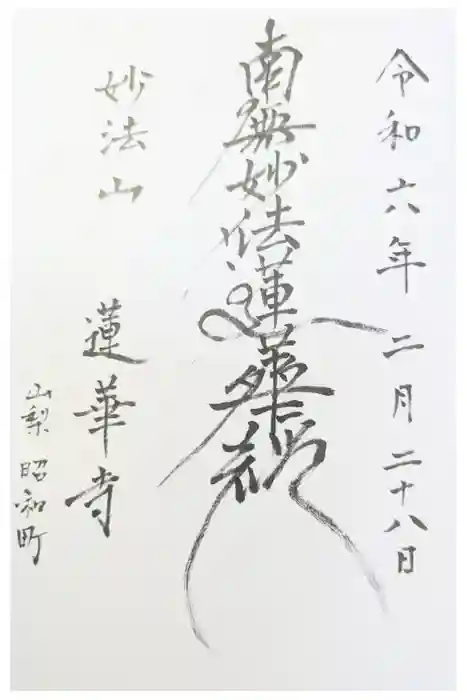 令和六年二月二十八日
南無妙法蓮華経
妙法山
蓮華寺
山梨昭和町